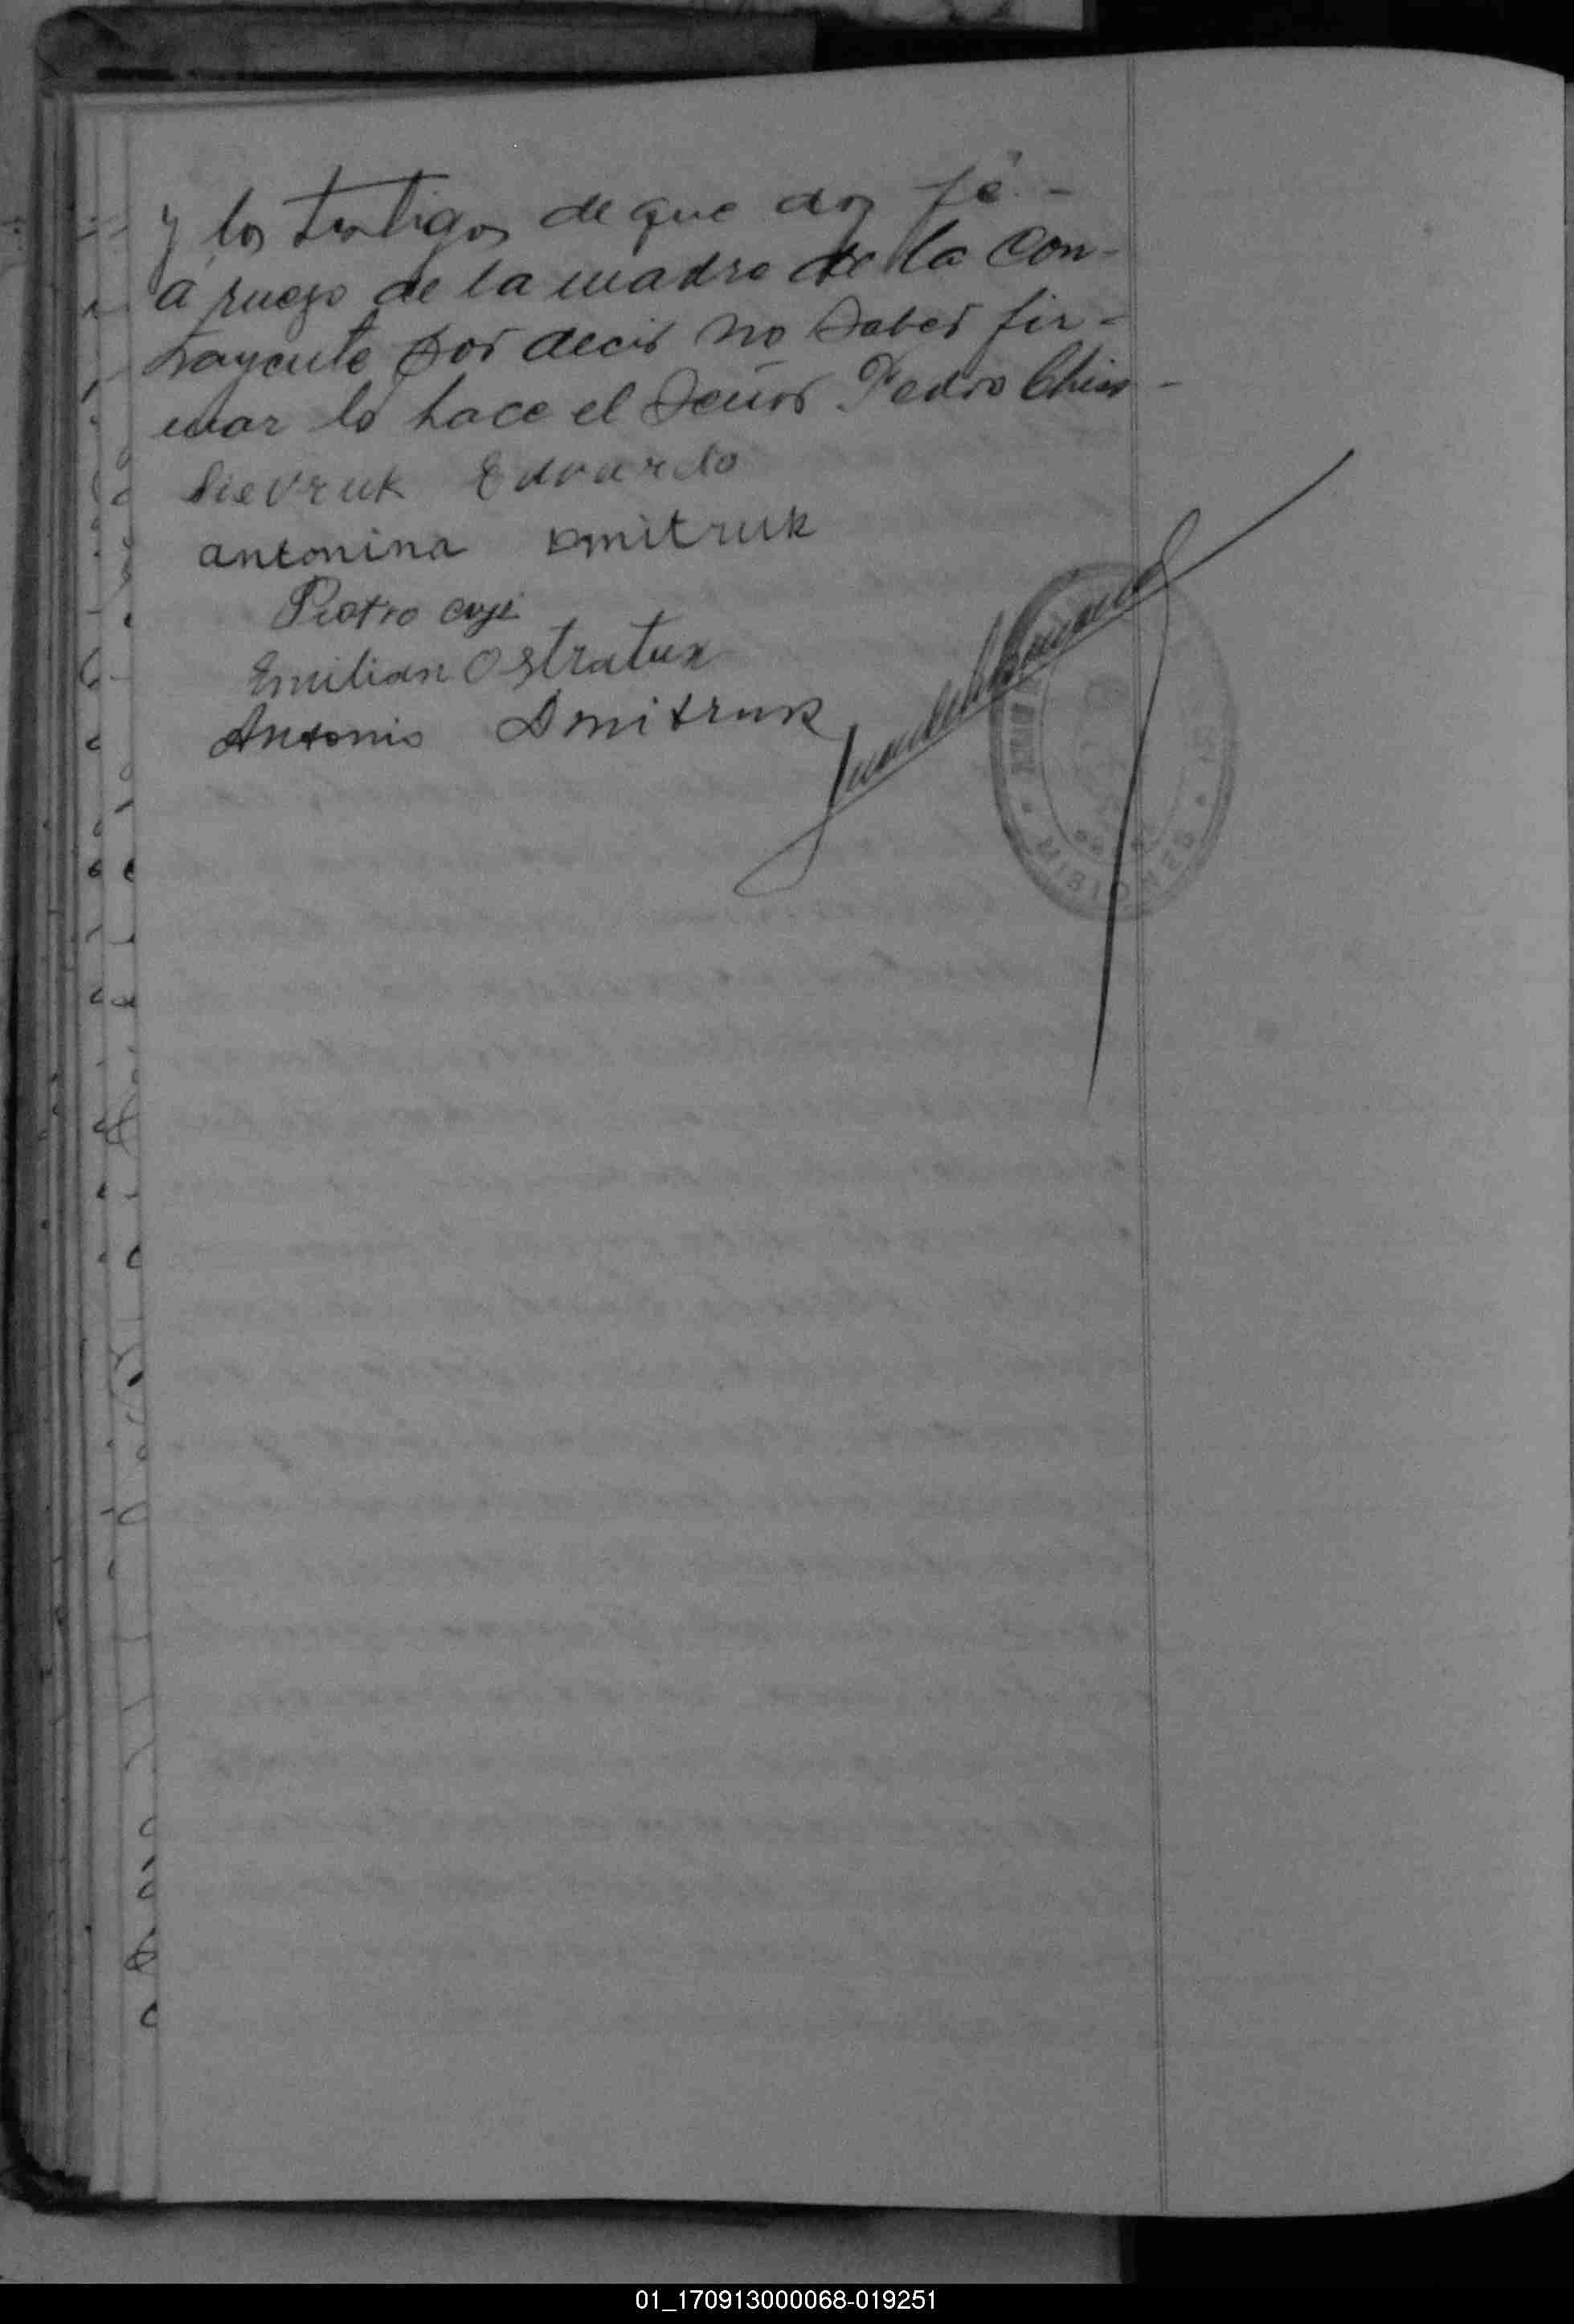 y los testigos de que doy fé. -
a ruego de la madre de la Con-
trayente por decir no saber fir-
mar lo hace el Señor Pedro
Edvardo
antonina Dmitruk
Piotro
Emilian Ostratux
Antonio Dmitruk
MISIONES
01_170913000068-019251